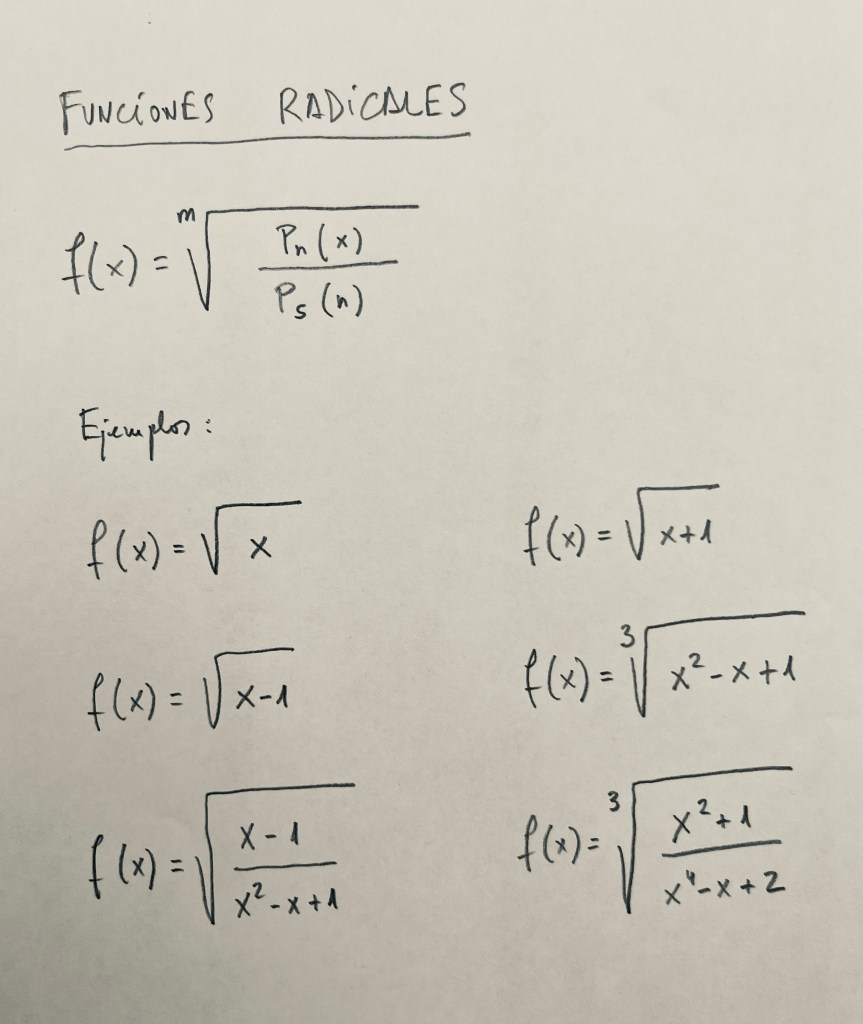 FUNCIONES RADICALES
f(x) = ᵐ√(Pₙ(x) / Pₛ(n))
Ejemplos:
f(x) = √x
f(x) = √(x+1)
f(x) = √(x-1)
f(x) = ³√(x²-x+1)
f(x) = √((x-1) / (x²-x+1))
f(x) = ³√((x²+1) / (x⁴-x+2))